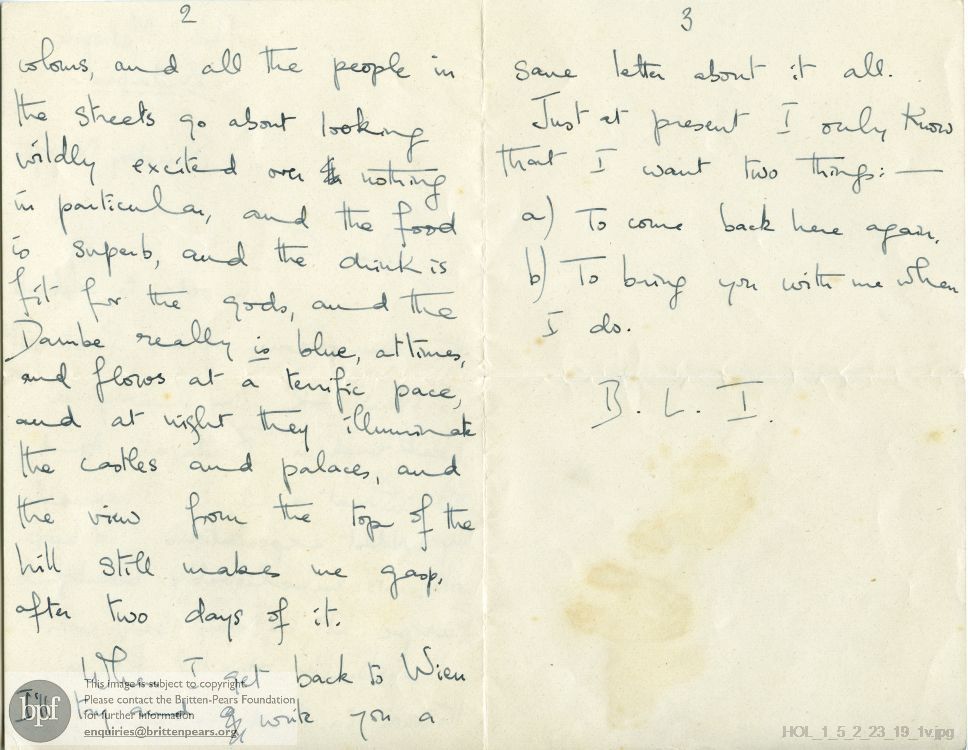 2
colours, and all the people in
the streets go about looking
wildly excited over nothing
in particular, and the food
is superb, and the drink is
fit for the gods, and the
Danube really is blue, at times,
and flows at a terrific pace,
and at night they illuminate
the castles and palaces, and
the view from the top of the
hill still makes me gasp,
after two days of it.
When I get back to Wien
I'll try and write you a
3
sane letter about it all.
Just at present I only know
that I want two things: —
a) To come back here again.
b) To bring you with me when
I do.
B. L. I.
bpf
This image is subject to copyright.
Please contact the Britten-Pears Foundation
for further information
enquiries@brittenpears.org
HOL_1_5_2_23_19_1v.jpg